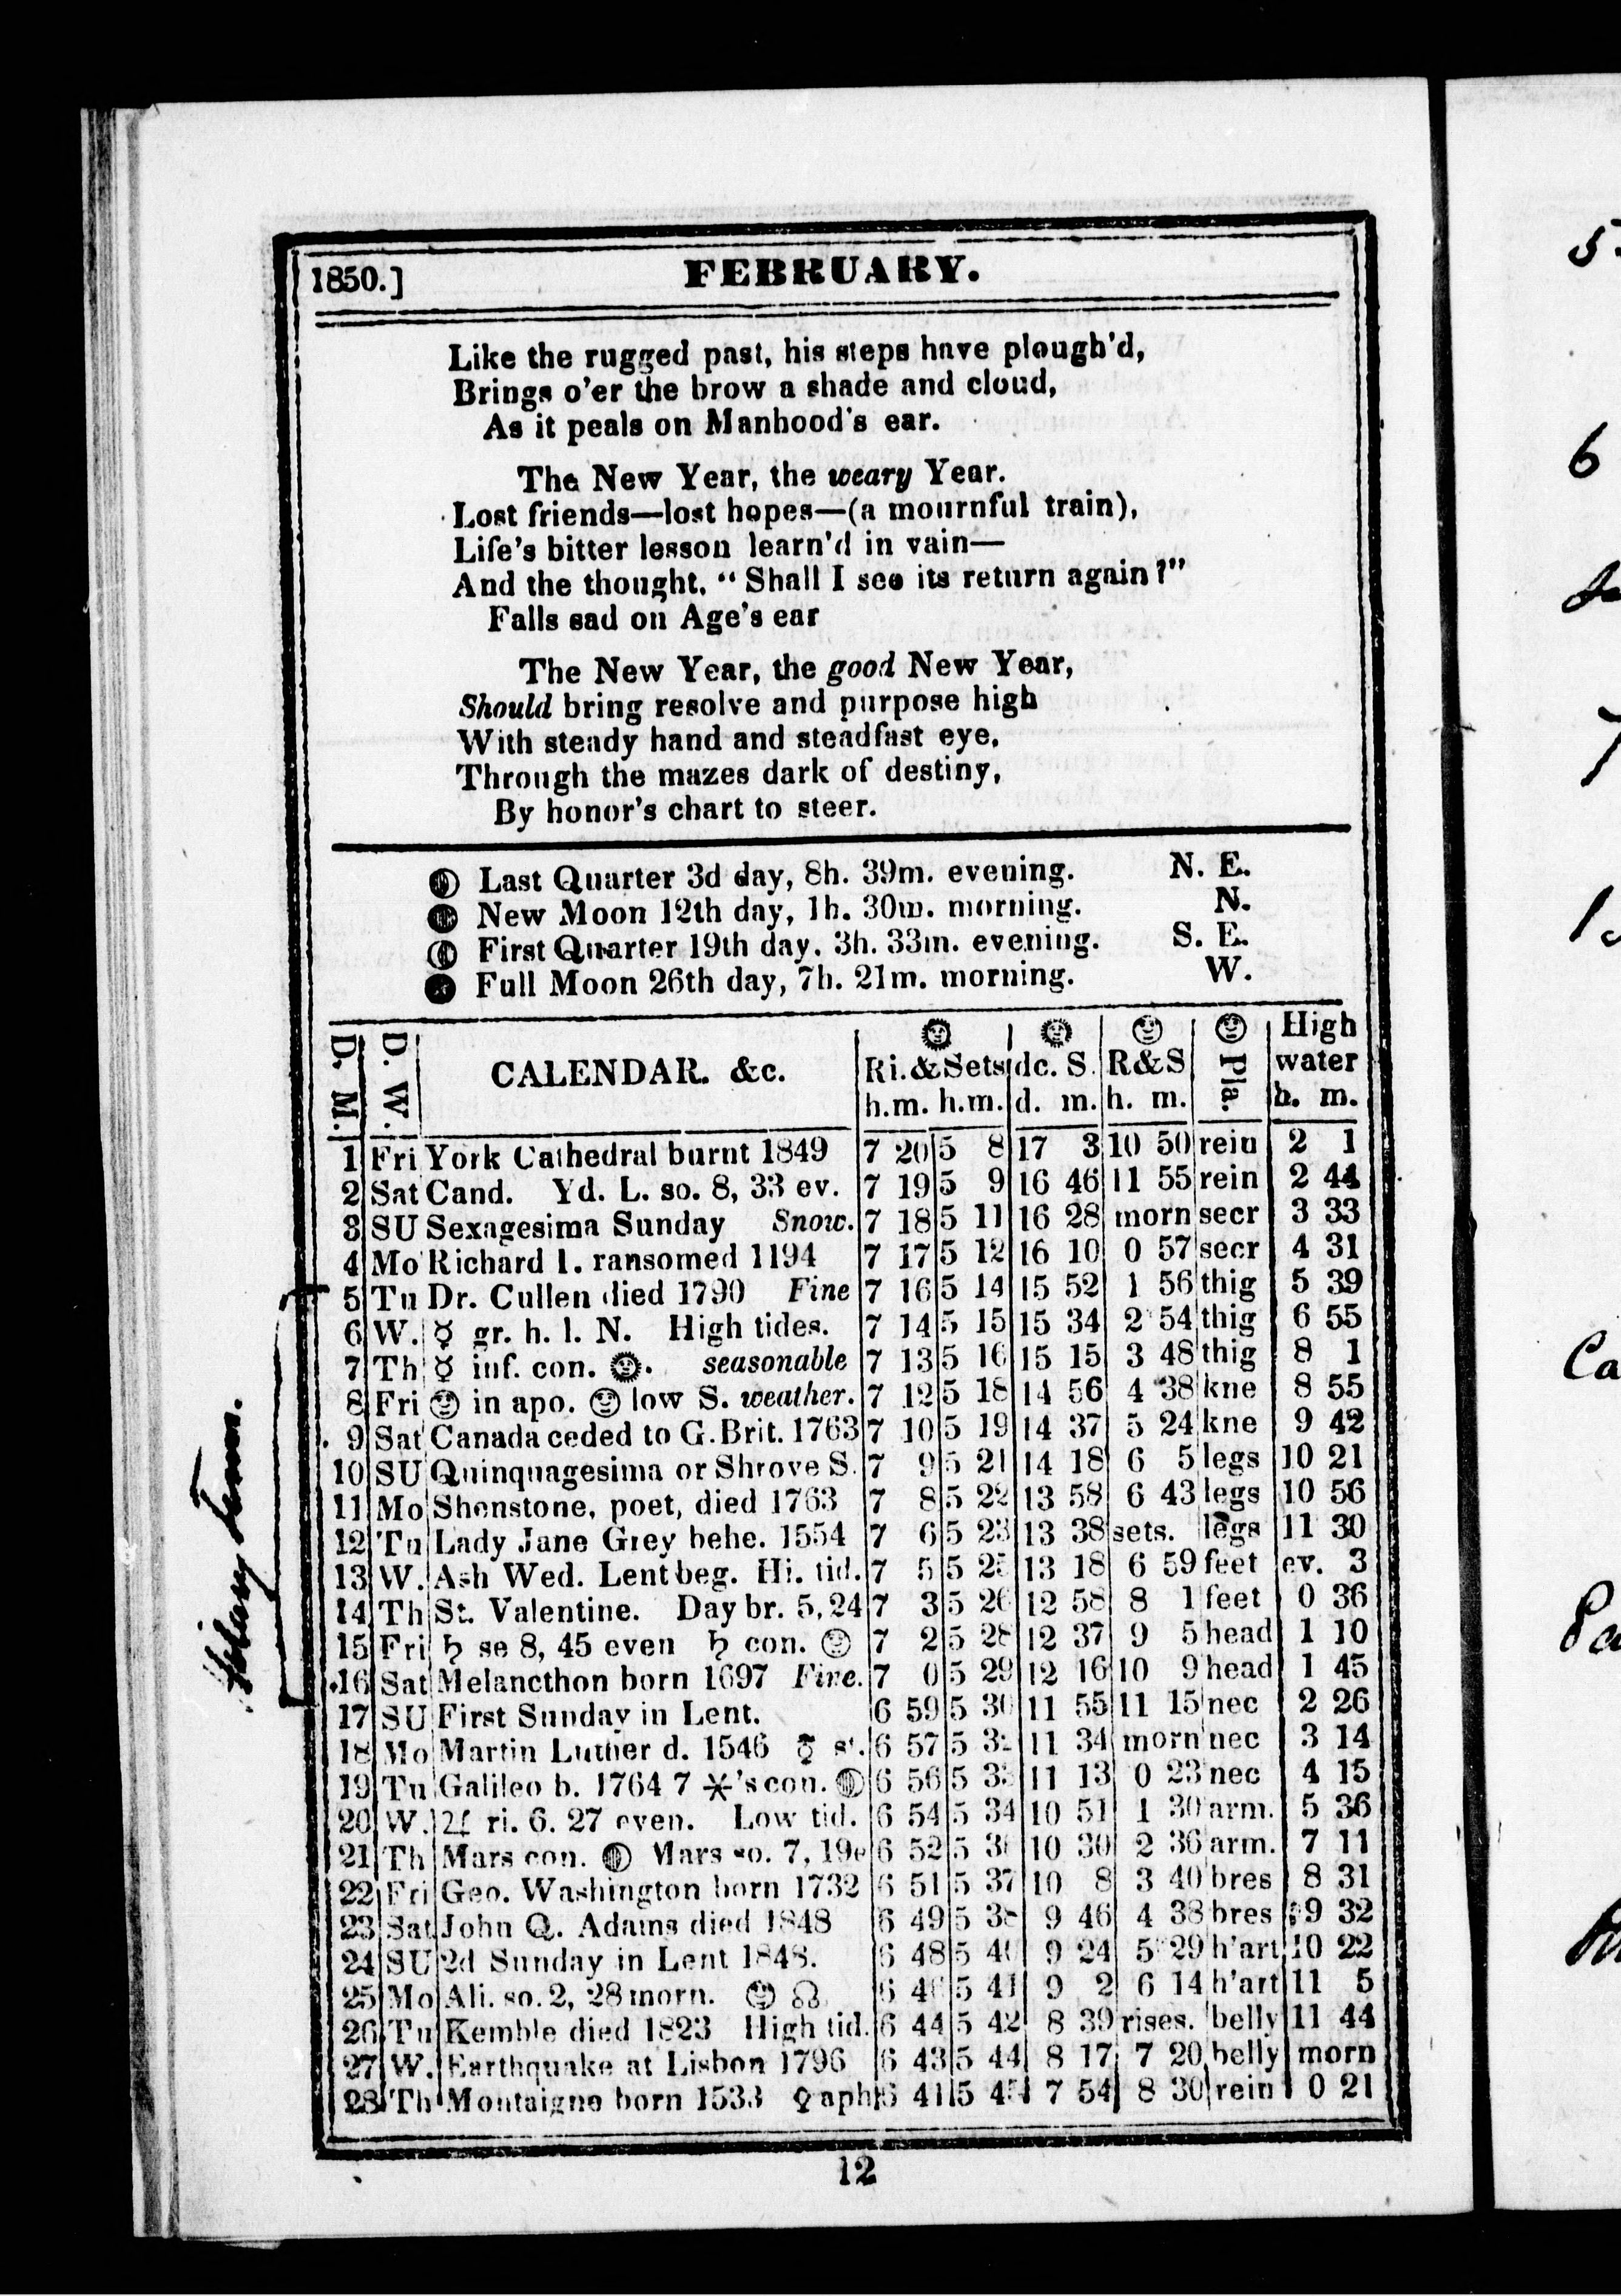 1850.] FEBRUARY.
Like the rugged past, his steps have plough'd,
Brings o'er the brow a shade and cloud,
As it peals on Manhood's ear.
The New Year, the weary Year.
Lost friends—lost hopes—(a mournful train),
Life's bitter lesson learn'd in vain—
And the thought, "Shall I see its return again?"
Falls sad on Age's ear
The New Year, the good New Year,
Should bring resolve and purpose high
With steady hand and steadfast eye,
Through the mazes dark of destiny,
By honor's chart to steer.
Last Quarter 3d day, 8h. 39m. evening. N. E.
New Moon 12th day, 1h. 30m. morning. N.
First Quarter 19th day, 3h. 33m. evening. S. E.
Full Moon 26th day, 7h. 21m. morning. W.
D. M. D. W. CALENDAR. &c. Ri.&Sets dc. S. R&S Pla. High water
h.m. h.m. d. m. h. m. h. m.
1 Fri York Cathedral burnt 1849 7 20 5 8 17 3 10 50 rein 2 1
2 Sat Cand. Yd. L. so. 8, 33 ev. 7 19 5 9 16 46 11 55 rein 2 44
3 SU Sexagesima Sunday Snow. 7 18 5 11 16 28 morn secr 3 33
4 Mo Richard I. ransomed 1194 7 17 5 12 16 10 0 57 secr 4 31
5 Tu Dr. Cullen died 1790 Fine 7 16 5 14 15 52 1 56 thig 5 39
6 W. ☿ gr. h. l. N. High tides. 7 14 5 15 15 34 2 54 thig 6 55
7 Th ☿ inf. con. seasonable 7 13 5 16 15 15 3 48 thig 8 1
8 Fri in apo. low S. weather. 7 12 5 18 14 56 4 38 kne 8 55
9 Sat Canada ceded to G. Brit. 1763 7 10 5 19 14 37 5 24 kne 9 42
10 SU Quinquagesima or Shrove S. 7 9 5 21 14 18 6 5 legs 10 21
11 Mo Shenstone, poet, died 1763 7 8 5 22 13 58 6 43 legs 10 56
12 Tu Lady Jane Grey behe. 1554 7 6 5 23 13 38 sets. legs 11 30
13 W. Ash Wed. Lent beg. Hi. tid. 7 5 5 25 13 18 6 59 feet ev. 3
14 Th St. Valentine. Day br. 5,24 7 3 5 26 12 58 8 1 feet 0 36
15 Fri ♄ se 8, 45 even ♄ con. 7 2 5 28 12 37 9 5 head 1 10
16 Sat Melancthon born 1697 Fine. 7 0 5 29 12 16 10 9 head 1 45
17 SU First Sunday in Lent. 6 59 5 30 11 55 11 15 nec 2 26
18 Mo Martin Luther d. 1546 ☿ st. 6 57 5 11 34 morn nec 3 14
19 Tu Galileo b. 1764 7 *'s con. 6 56 5 33 11 13 0 23 nec 4 15
20 W. ♃ ri. 6. 27 even. Low tid. 6 54 5 34 10 51 1 30 arm. 5 36
21 Th Mars con. Mars so. 7, 19e 6 52 5 10 30 2 36 arm. 7 11
22 Fri Geo. Washington born 1732 6 51 5 37 10 8 3 40 bres 8 31
23 Sat John Q. Adams died 1848 6 49 5 38 9 46 4 38 bres 9 32
24 SU 2d Sunday in Lent 1848. 6 48 5 40 9 24 5 29 h'art 10 22
25 Mo Ali. so. 2, 28 morn. ☊ 6 46 5 41 9 2 6 14 h'art 11 5
26 Tu Kemble died 1823 High tid. 6 44 5 42 8 39 rises. belly 11 44
27 W. Earthquake at Lisbon 1796 6 43 5 44 8 17 7 20 belly morn
28 Th Montaigne born 1533 ♀ aph 6 41 5 45 7 54 8 30 rein 0 21
12
Hilary Term.
6
Ca